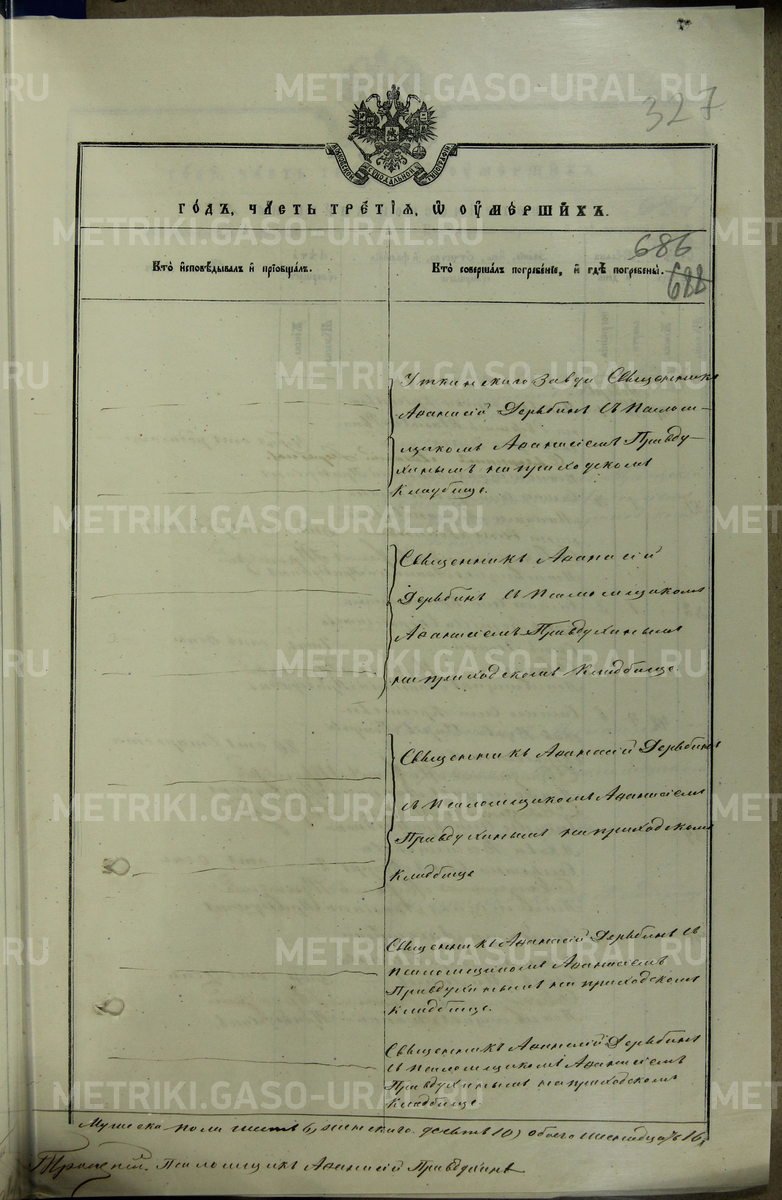 METRIKI.GASO-URAL.RU
327
МОСКОВСКОЙ СѴНОДАЛЬНОЙ ТИПОГРАФІИ
ГО́ДЪ, ЧА́СТЬ ТРЕ́ТІЯ, Ѡ ОУ҆МЕ́РШИХЪ.
686
688
Кто̀ и҆сповѣ́дывалъ и҆ пріѡбща́лъ.
Кто̀ соверша́лъ погребе́ніе, и҆ гдѣ̀ погребены̀.
Уткинскаго Завода Священникъ
Аѳанасій Дерябинъ съ Псалом-
щикомъ Аѳанасіемъ Правду-
хинымъ на приходскомъ
Кладбище.
Священникъ Аѳанасій
Дерябинъ съ Псаломщикомъ
Аѳанасіемъ Правдухинымъ
на приходскомъ Кладбище.
Священникъ Аѳанасій Дерябинъ
съ Псаломщикомъ Аѳанасіемъ
Правдухинымъ на приходскомъ
Кладбище
Священникъ Аѳанасій Дерябинъ съ
псаломщикомъ Аѳанасіемъ
Правдухинымъ на приходскомъ
Кладбище.
Священникъ Аѳанасій Дерябинъ
съ Псаломщикомъ Аѳанасіемъ
Правдухинымъ на приходскомъ
Кладбище.
Мужеска пола шесть 6, женскаго десять 10, обоего шестнадцать 16,
Псаломщикъ Аѳанасій Правдухинъ